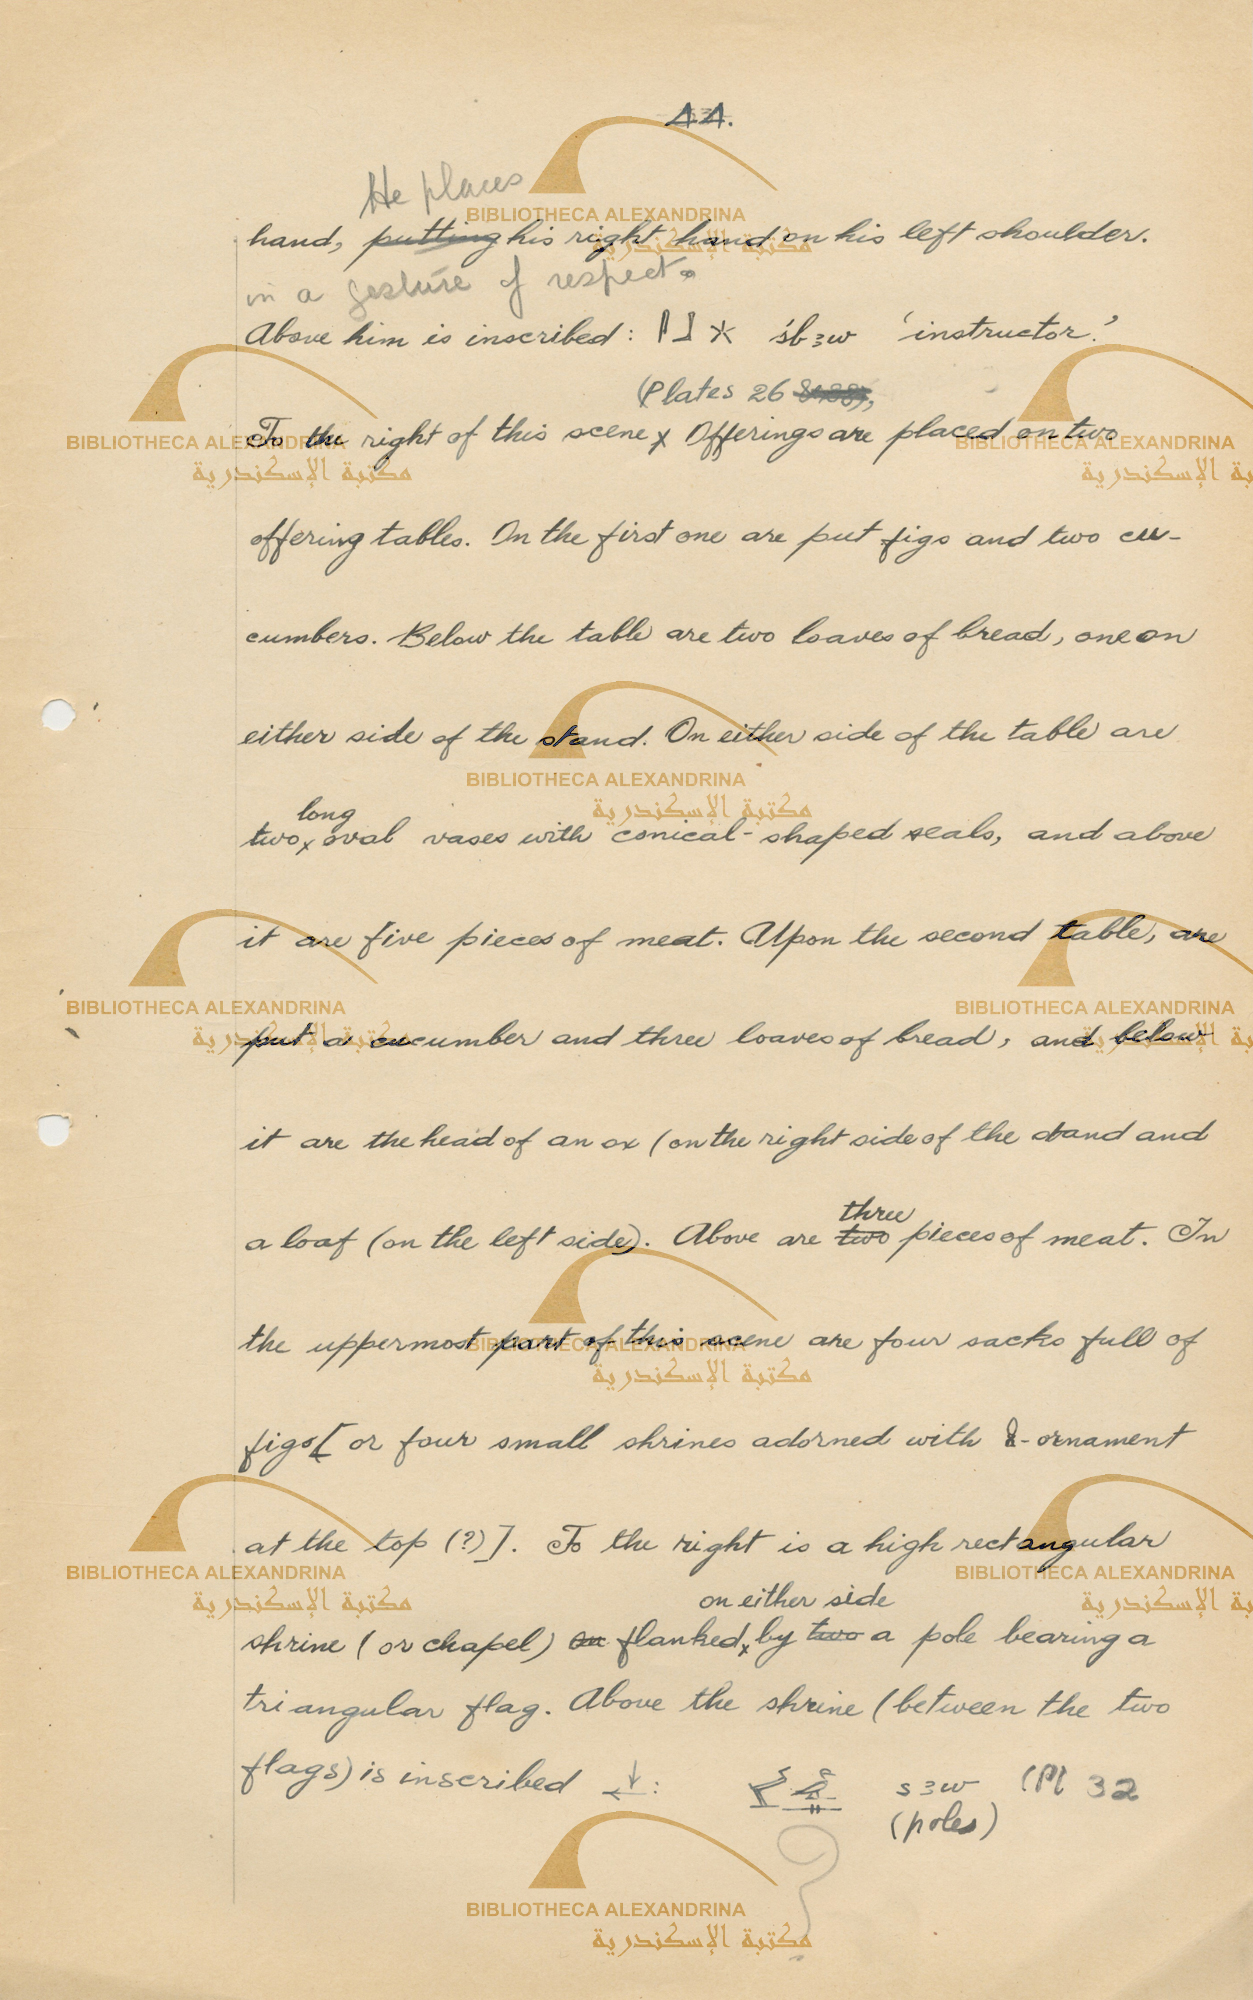 44.
He places
hand, putting his right hand on his left shoulder.
in a gesture of respect.
Above him is inscribed: 𓋴𓃀𓇼 śbꜣw 'instructor.'
(Plates 26
To the right of this scene x Offerings are placed on two
offering tables. On the first one are put figs and two cu-
cumbers. Below the table are two loaves of bread, one on
either side of the stand. On either side of the table are
long
two x oval vases with conical-shaped seals, and above
it are five pieces of meat. Upon the second table, are
put a cucumber and three loaves of bread, and below
it are the head of an ox (on the right side of the stand and
three
a loaf (on the left side). Above are two pieces of meat. In
the uppermost part of this scene are four sacks full of
figs [ or four small shrines adorned with 8-ornament
at the top (?)]. To the right is a high rectangular
on either side
shrine (or chapel) on flanked x by two a pole bearing a
triangular flag. Above the shrine (between the two
flags) is inscribed ↓← : sꜣw (Pl 32
(poles)
BIBLIOTHECA ALEXANDRINA
مكتبة الإسكندرية